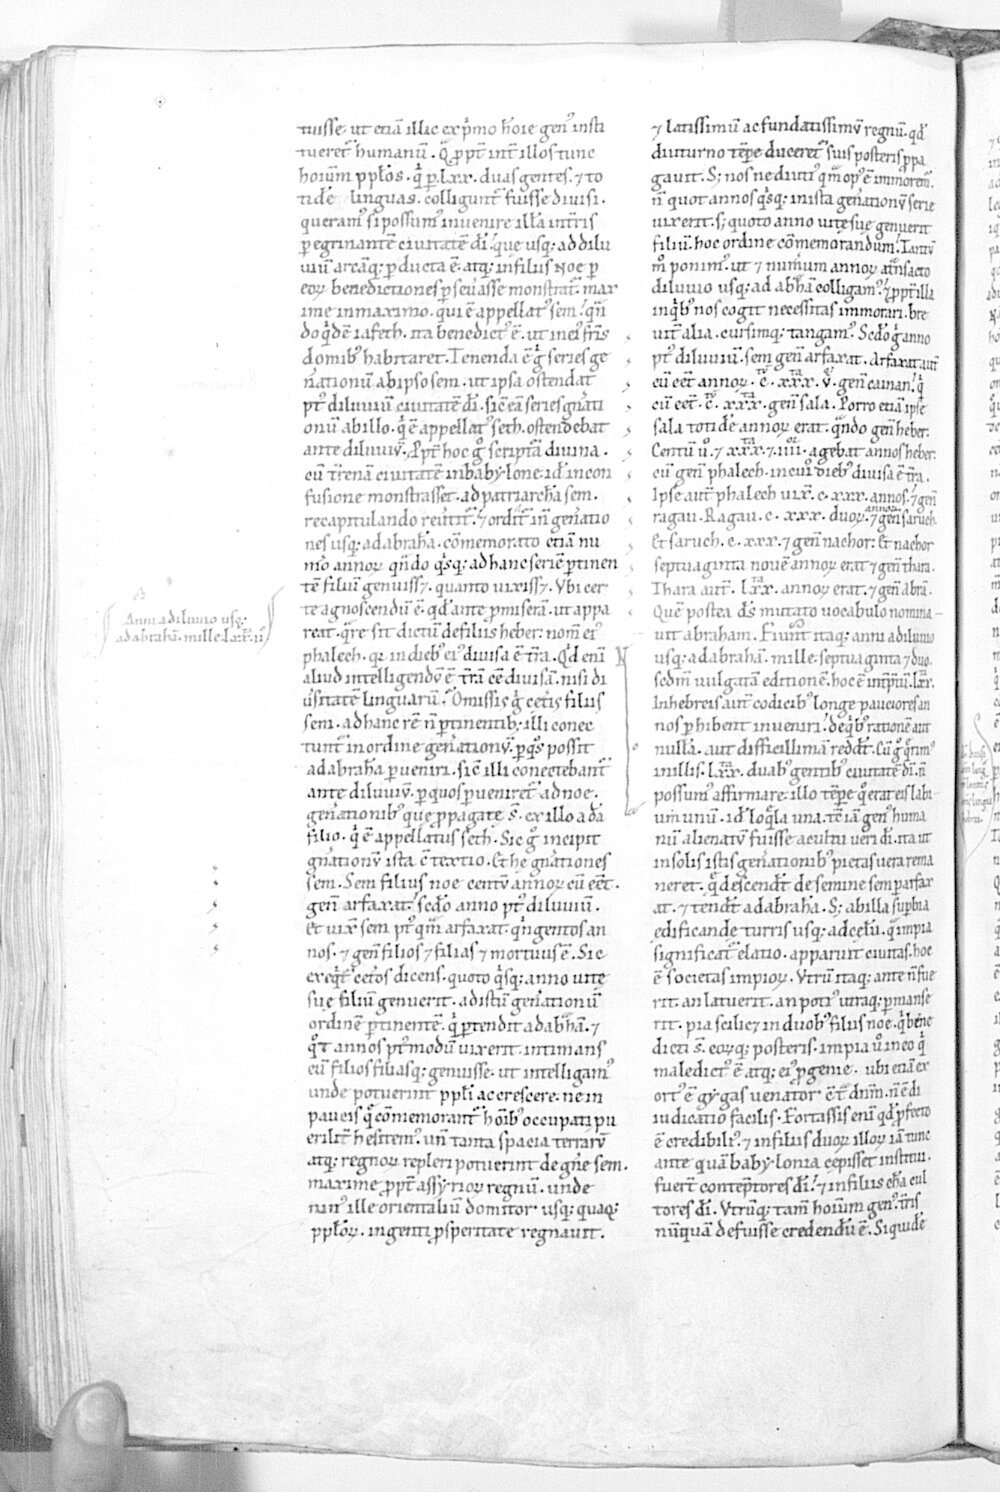 tuisse. ut etiā illic ex p̄mo hoīe gen᷒ insti
tueret᷒ humanū. Q̄ ꝓpt̄ int̄ illos tunc
hoiūm pp̄los. q̄ p̱. lxx. duas gentes. ⁊ to
tidē linguas. colligunt᷒ fuisse diuisi.
queram᷒ si possum᷒ inuenire illā int̄ris
ꝑegrinantē ciuitatē dī. que usq; ad dilu
uiū arcāq; ꝑducta ē. atq; in filiis Noe ꝑ
eoꝝ benedictiones ꝑseuasse monstrat᷒. max
ime in maximo. qui ē appellat᷒ sem. qn̄
doq̇dē iafeth. ita benedict᷒ ē. ut in ei᷒ fr̄is
domib᷒ habitaret. Tenenda ē ḡ series ge
nationū ab ipso sem. ut ipsa ostendat
pt᷒ diluuiū ciuitatē dī. sic̄ eā series gn̄ati
onū ab illo. q̇ ē appellat᷒ seth. ostendebat
ante diluuiū. Ꝓpt̄ hoc ḡ scriptā diuina.
cū t̄renā ciuitatē in babylone. id ē in con
fusione monstrasset. ad patriarchā sem.
recapitulando reūtit᷒. ⁊ ordit᷒ in gen̄atio
nes usq; ad abrahā. cōmemorato etiā nu
m̄o annoꝝ qn̄ do q̇sq; ad hanc seriē ꝑtinen
tē filiū genuiss⁊. quanto uixiss⁊. Vbi cer
te agnoscendū ē. qd̄ ante ꝓmiserā. ut appa
reat. q̄re sit dictū de filiis heber: nom̄ ei᷒
phalech. qr̄ in dieb᷒ ei᷒ diuisa ē t̄ra. Qd̄ enī
aliud intelligendū ē t̄rā eē diuisā. nisi di
ūsitatē linguarū? Omissis ḡ cet̄is filiis
sem. ad hanc rē n̄ ꝑtinentib᷒; illi conec
tunt᷒ in ordine gen̄ationū. ꝑ q̊s possit
ad abrahā ꝑueniri. sic̄ illi conectebant᷒
ante diluuiū. ꝑ quos ꝑueniret᷒ ad noe.
gen̄ationib᷒ que ꝓpagate s̄. ex illo adā
filio. q̇ ē appellatus seth. Sic ḡ incipit
gn̄ationū ista ē textio. Et he gn̄ationes
sem. Sem filius noe centū annoꝝ cū eēt.
gen̄ arfaxat. sc̄do anno pt᷒ diluuiū.
Et uix̄ sem pt᷒ qm̄ arfaxat. q̇ngentos an
nos. ⁊ gen̄ filios ⁊ filias ⁊ mortuus ē. Sic
exeq̇t᷒ cet̄os dicens. quoto q̇sq; anno uite
sue filiū genuerit. ad istū gen̄ationū
ordinē ꝑtinentē. q̇ ꝑtendit ad abhā. ⁊
q̊t annos pt᷒modū uixerit. intimans
eū filios filiasq; genuisse. ut intelligam᷒
unde potuerint pp̄li accrescere. ne in
paucis q̇ cōmemorant᷒ hoīb᷒ occupati pu
erilit̄ hesitem᷒. un̄ tanta spacia terrarū
atq; regnoꝝ repleri potuerint de gn̄e sem.
maxime ꝓpt̄ assyrioꝝ regnū. unde
nin᷒ ille orientaliū domitor usq; quaq;
pp̄loꝝ. ingenti ꝓsperitate regnauit.
⁊ latissimū ac fundatissimū regnū. qd̄
diuturno tēpe duceret᷒ suis posteris ꝓpa
gauit. S; nos ne diuti᷒ qm̄ op᷒ ē immorem᷒.
n̄ quot annos q̇sq; in ista gen̄ationū serie
uixerit. s; quoto anno uite sue genuerit
filiū. hoc ordine cōmemorandum. Tantū
m̊ ponim᷒. ut ⁊ num̄um annoꝝ a t̄nsacto
diluuio usq; ad abhā colligam᷒. ⁊ ꝓpt̄ illa
in q̇b᷒ nos cogit necessitas immorari. bre
uit̄ alia. cursimq; tangam᷒. Sc̄do ḡ anno
pt᷒ diluuiū. sem gen̄ arfaxat. Arfaxat aūt
cū eēt annoꝝ. c̄. xxx. v̄. gen̄ cainan. q̇
cū eēt. c̄. xxx. gen̄ sala. Porro etiā ipse
sala totidē annoꝝ erat. qn̄do gen̄ heber.
Centū ū. ⁊ xxx. ⁊ iiii. agebat annos heber.
cū gen̄ phalech. in cui᷒ dieb᷒ diuisa ē t̄ra.
Ipse aūt phalech uix̄. c. xxx. annos. ⁊ gen̄
ragau. Ragau. c. xxx. duoꝝ. annoꝝ ⁊ gen̄ saruch.
Et saruch. c. xxx. ⁊ gen̄ nachor: Et nachor
septuaginta nouē annoꝝ erat ⁊ gen̄ thara.
Thara aūt. lxx. annoꝝ erat. ⁊ gen̄ abrā.
Quē postea d̄s mutato uocabulo nomina
uit abraham. Fiunt itaq; anni a diluuio
usq; ad abrahā. mille. septuaginta ⁊ duo.
sc̄dm̄ uulgatā editionē. hoc ē int̄ptū. lxx.
In hebreis aūt codicib᷒ longe pauciores an
nos ꝑhibent inueniri. de q̇b᷒ rationē aut
nullā. aut difficillimā reddt̄. Cū ḡ q̄rim᷒
in illis. lxx. duab᷒ gentib᷒ ciuitatē dī. n̄
possum᷒ affirmare. illo tēpe q̇ erat eis labi
um unū. id ē loq̄la una. tē iā gen᷒ huma
nū alienatū fuisse a cultu ueri dī. ita ut
in solis istis gen̄ationib᷒ pietas uera rema
neret. q̄ descendt̄ de semine sem ꝑ arfax
at. ⁊ tendt̄ ad abrahā. S; ab illa suꝑbia
edificande turris usq; ad celū. q̄ impia
significat᷒ elatio. apparuit ciuitas. hoc
ē societas impioꝝ. Vtrū itaq; ante n̄ fue
rit. an latuerit. an poti᷒ utraq; ꝑmanse
rit. pia scilic⁊ in duob᷒ filiis noe. q̇ bene
dicti s̄. eoꝝq; posteris. impia ū in eo q̇
maledict᷒ ē atq; ei᷒ ꝓgenie. ubi etiā ex
ort᷒ ē gygas uenator ēt᷒ dn̄m. n̄ ē di
iudicatio facilis. Fortassis enī qd̄ ꝓfecto
ē credibili᷒. ⁊ in filiis duoꝝ illoꝝ iā tunc
ante quā babylonia cepisset institui.
fuer̄t contēptores dī. ⁊ in filiis chā cul
tores dī. Vtrūq; tam̄ hoiūm gen᷒. t̄ris
nūquā defuisse credendū ē. Siquidē
Anni a diluuio usq;
ad abrahā. mille. lxx. ii